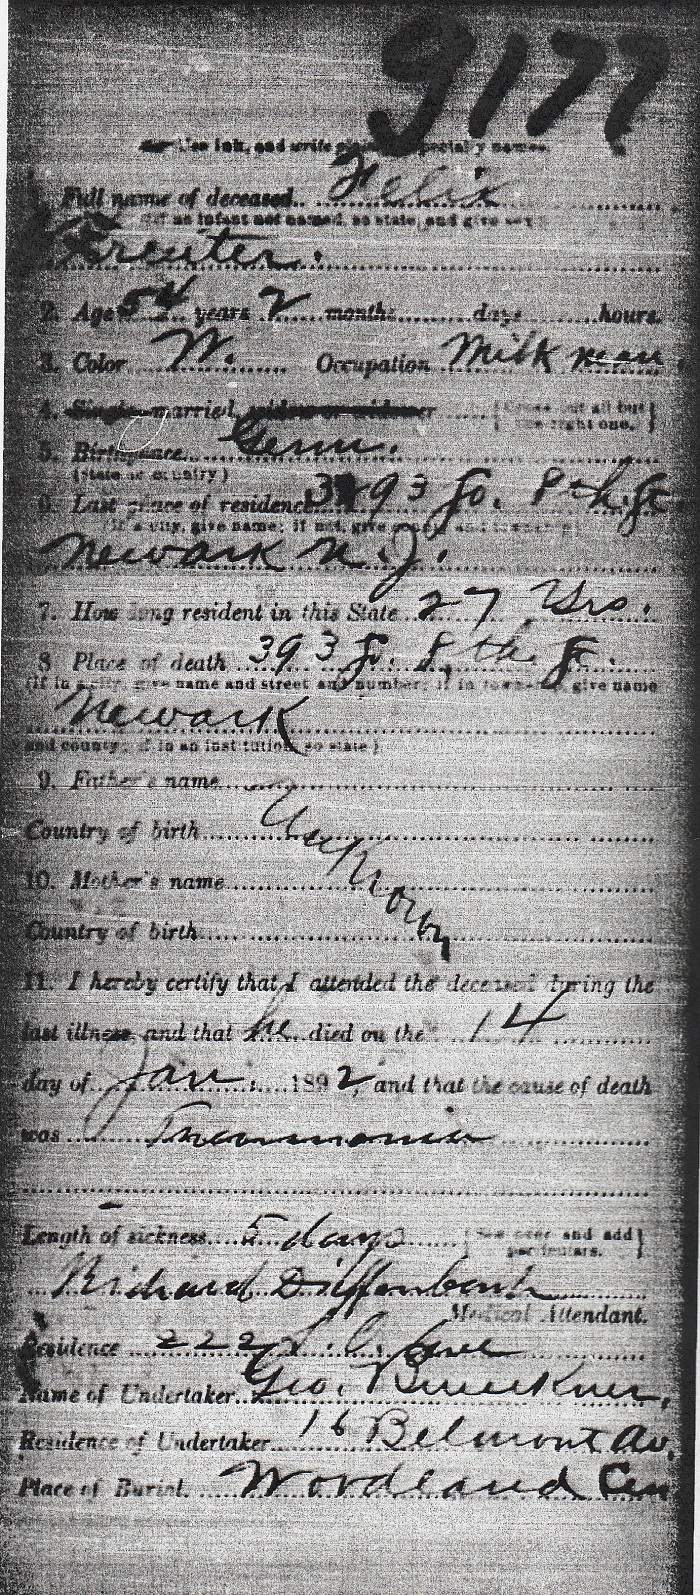 9177
Use ink, and write plainly especially names.
1. Full name of deceased Felix
(If an infant not named, so state, and give sex)
Freuter.
2. Age 54 years 2 months days hours.
3. Color W. Occupation Milk man
4. Single married, widow or widower {Cross out all but the right one.}
5. Birthplace Germ.
(State or country)
6. Last place of residence 393 So. 8th St
(If a city, give name; if not, give county and township)
Newark N. J.
7. How long resident in this State 27 Yrs.
8 Place of death 393 So. 8th St.
(If in a city, give name and street and number; if in township, give name
Newark
and county; if in an institution, so state)
9. Father's name
Country of birth Unknown
10. Mother's name
Country of birth
11. I hereby certify that I attended the deceased during the
last illness, and that he died on the 14
day of Jan. 1892, and that the cause of death
was Pneumonia
Length of sickness 5 days {See over and add particulars.}
Richard Dieffenbach
Medical Attendant.
Residence 222
Name of Undertaker Geo. Brueckner,
Residence of Undertaker 16 Belmont Av.
Place of Burial. Woodland Cem